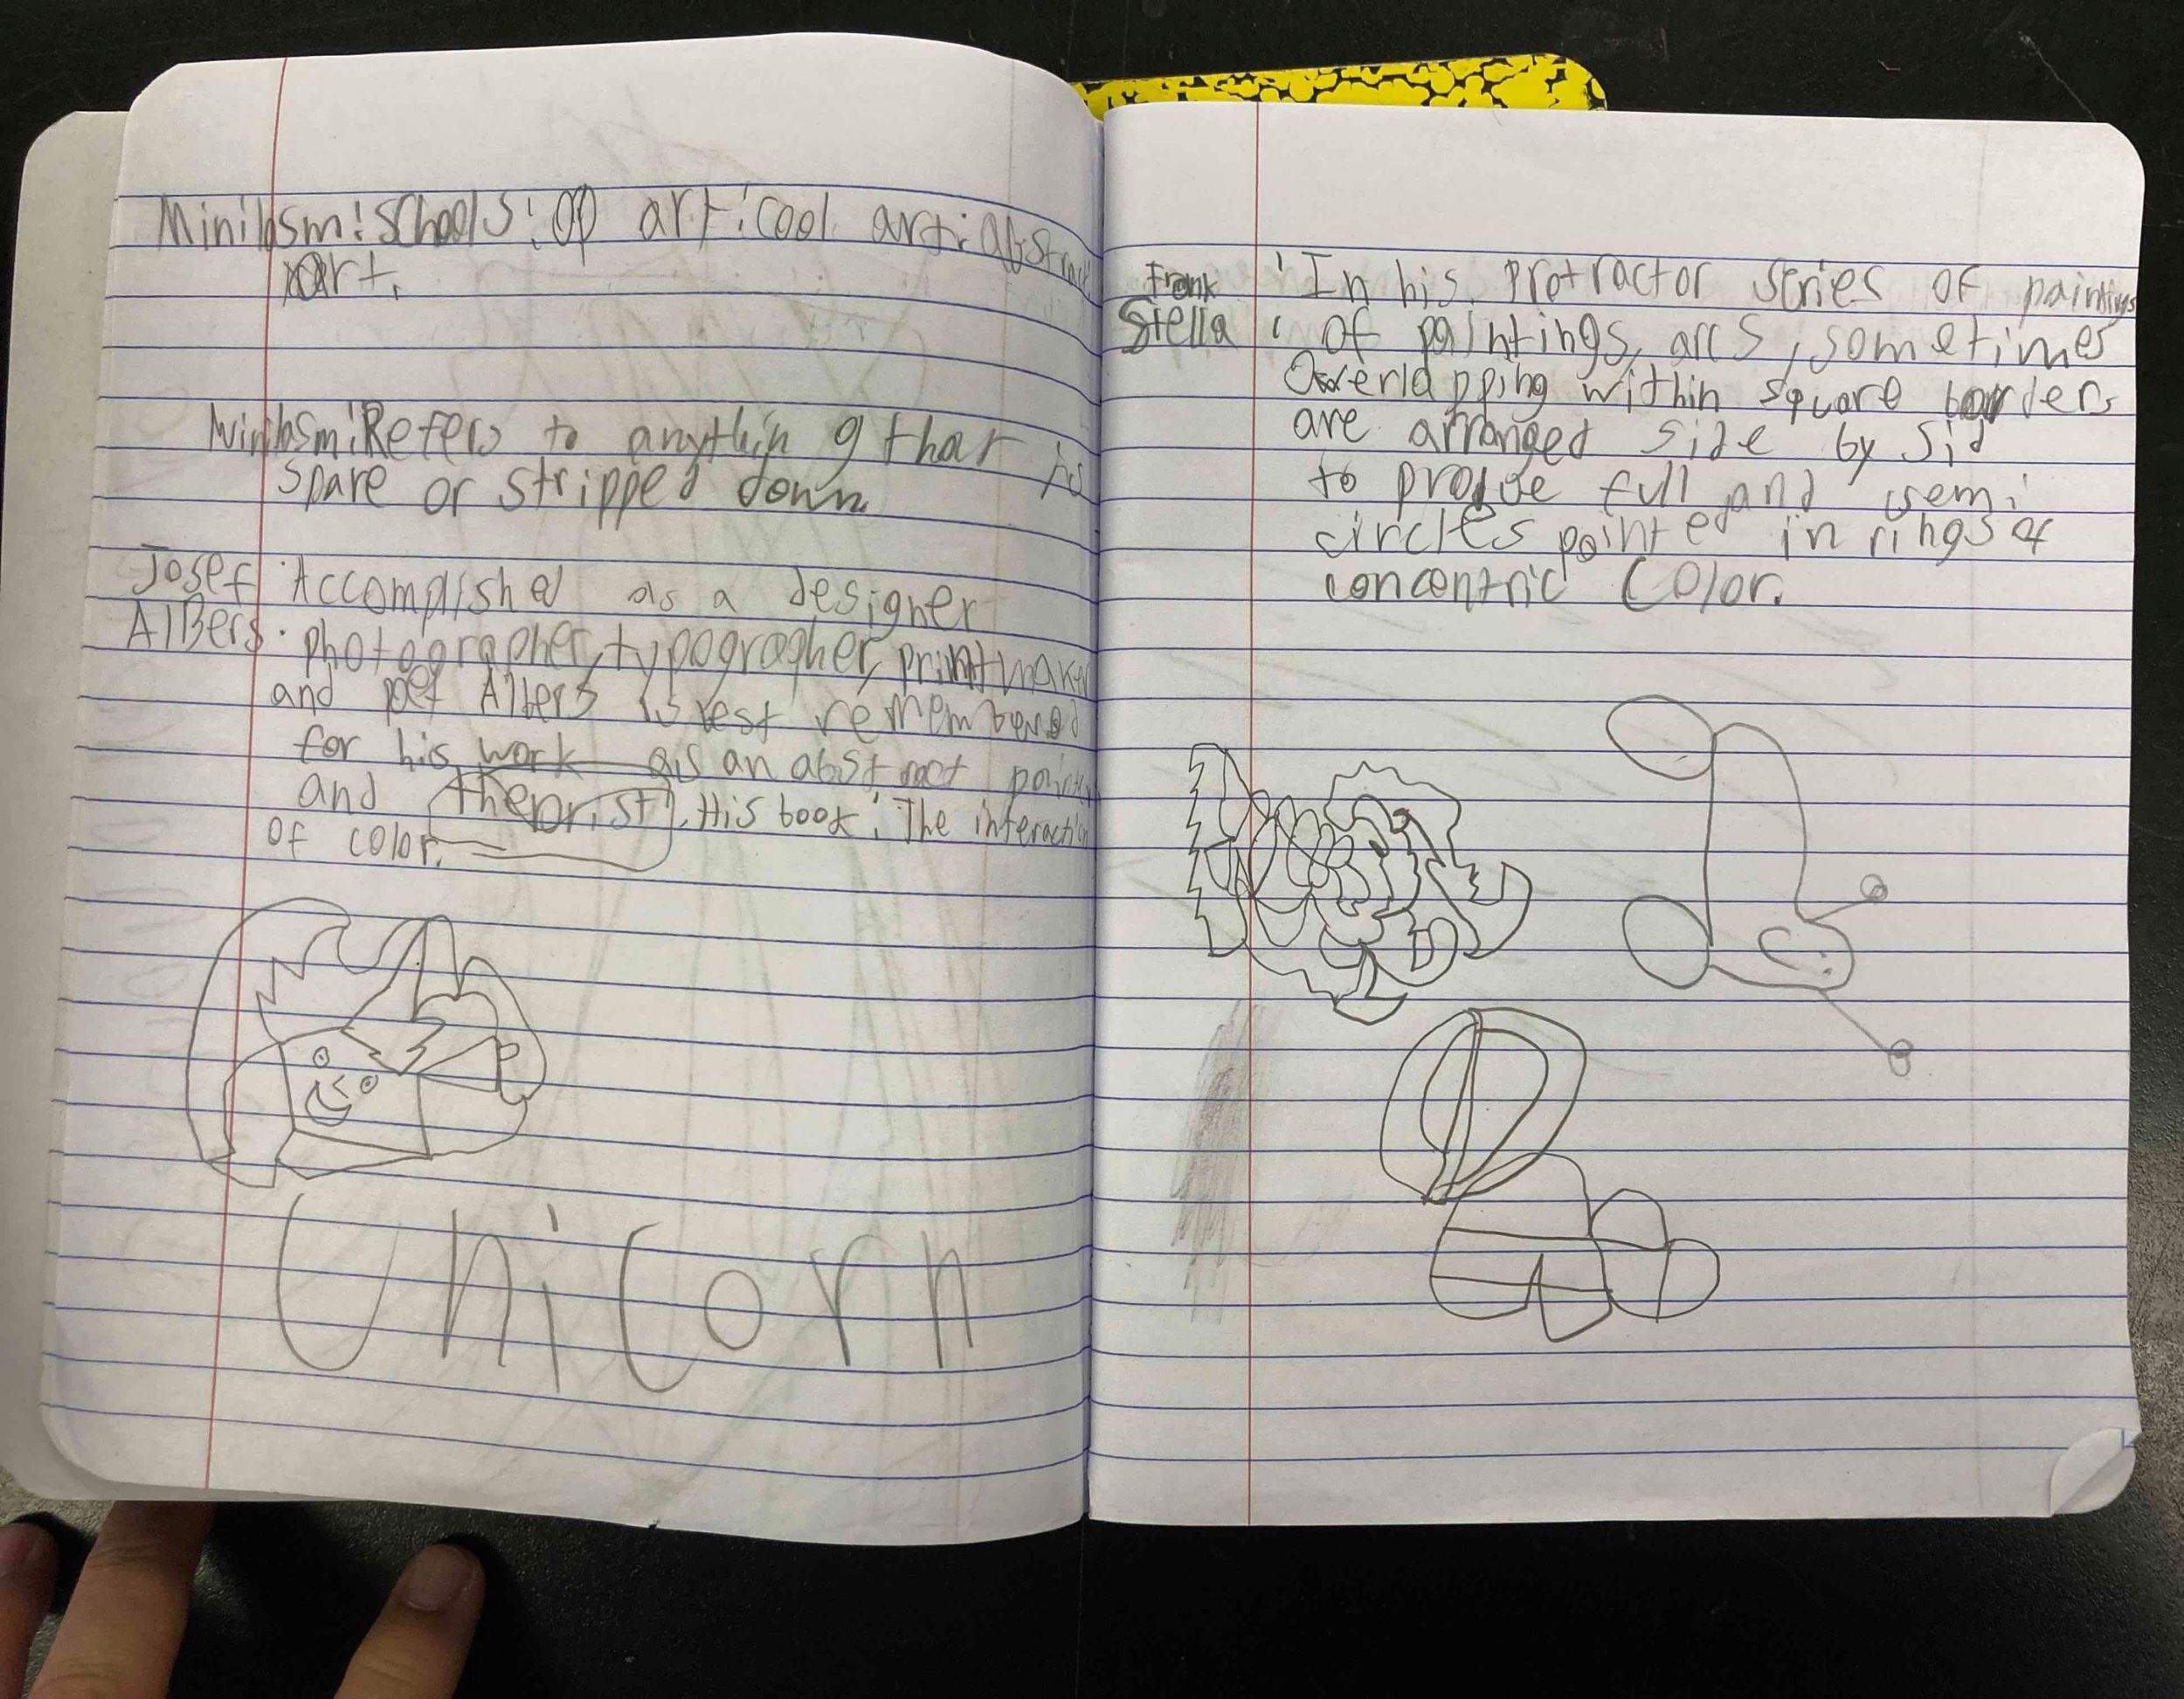 Minilasm: Schools: Op art: cool art: abstract
art.
Minilasm: Refers to anythin g that is
spare or stripped down
Josef : Accomplishd as a designer
AlBers : photographer, typographer, printmaker
and poet Albers is best remembered
for his work as an abstract painter
and theorist. His book: The interaction
of color.
Unicorn
Frank : In his Protractor series of paintings
Stella : of paintings, arcs, sometimes
Overlapping within square borders
are arranged side by Sid
to produe full and semi
circles painted in rings of
concentric Color.